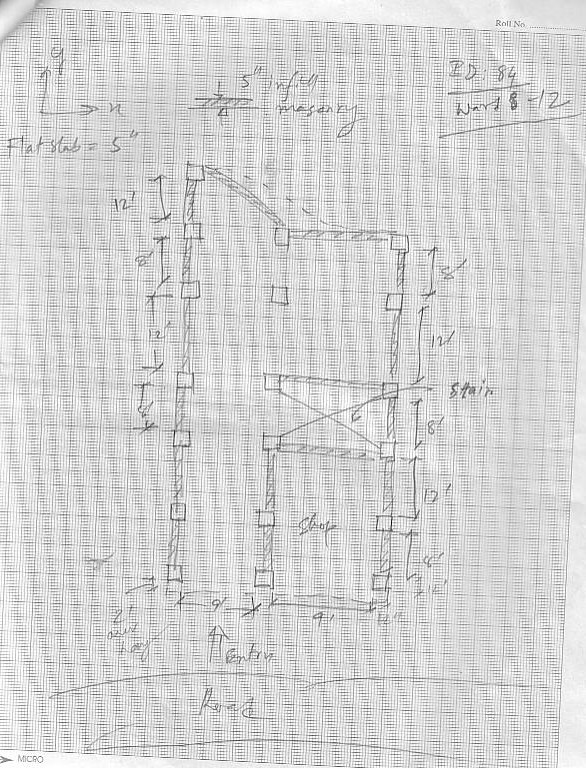 Roll No.
y
x
5" infill
masonry
ID: 84
Ward 8-12
Flat slab = 5"
12'
8'
12'
8'
8'
12'
Stair
8'
12'
8'
Shop
9'
9'
2'
Entry
Road
MICRO